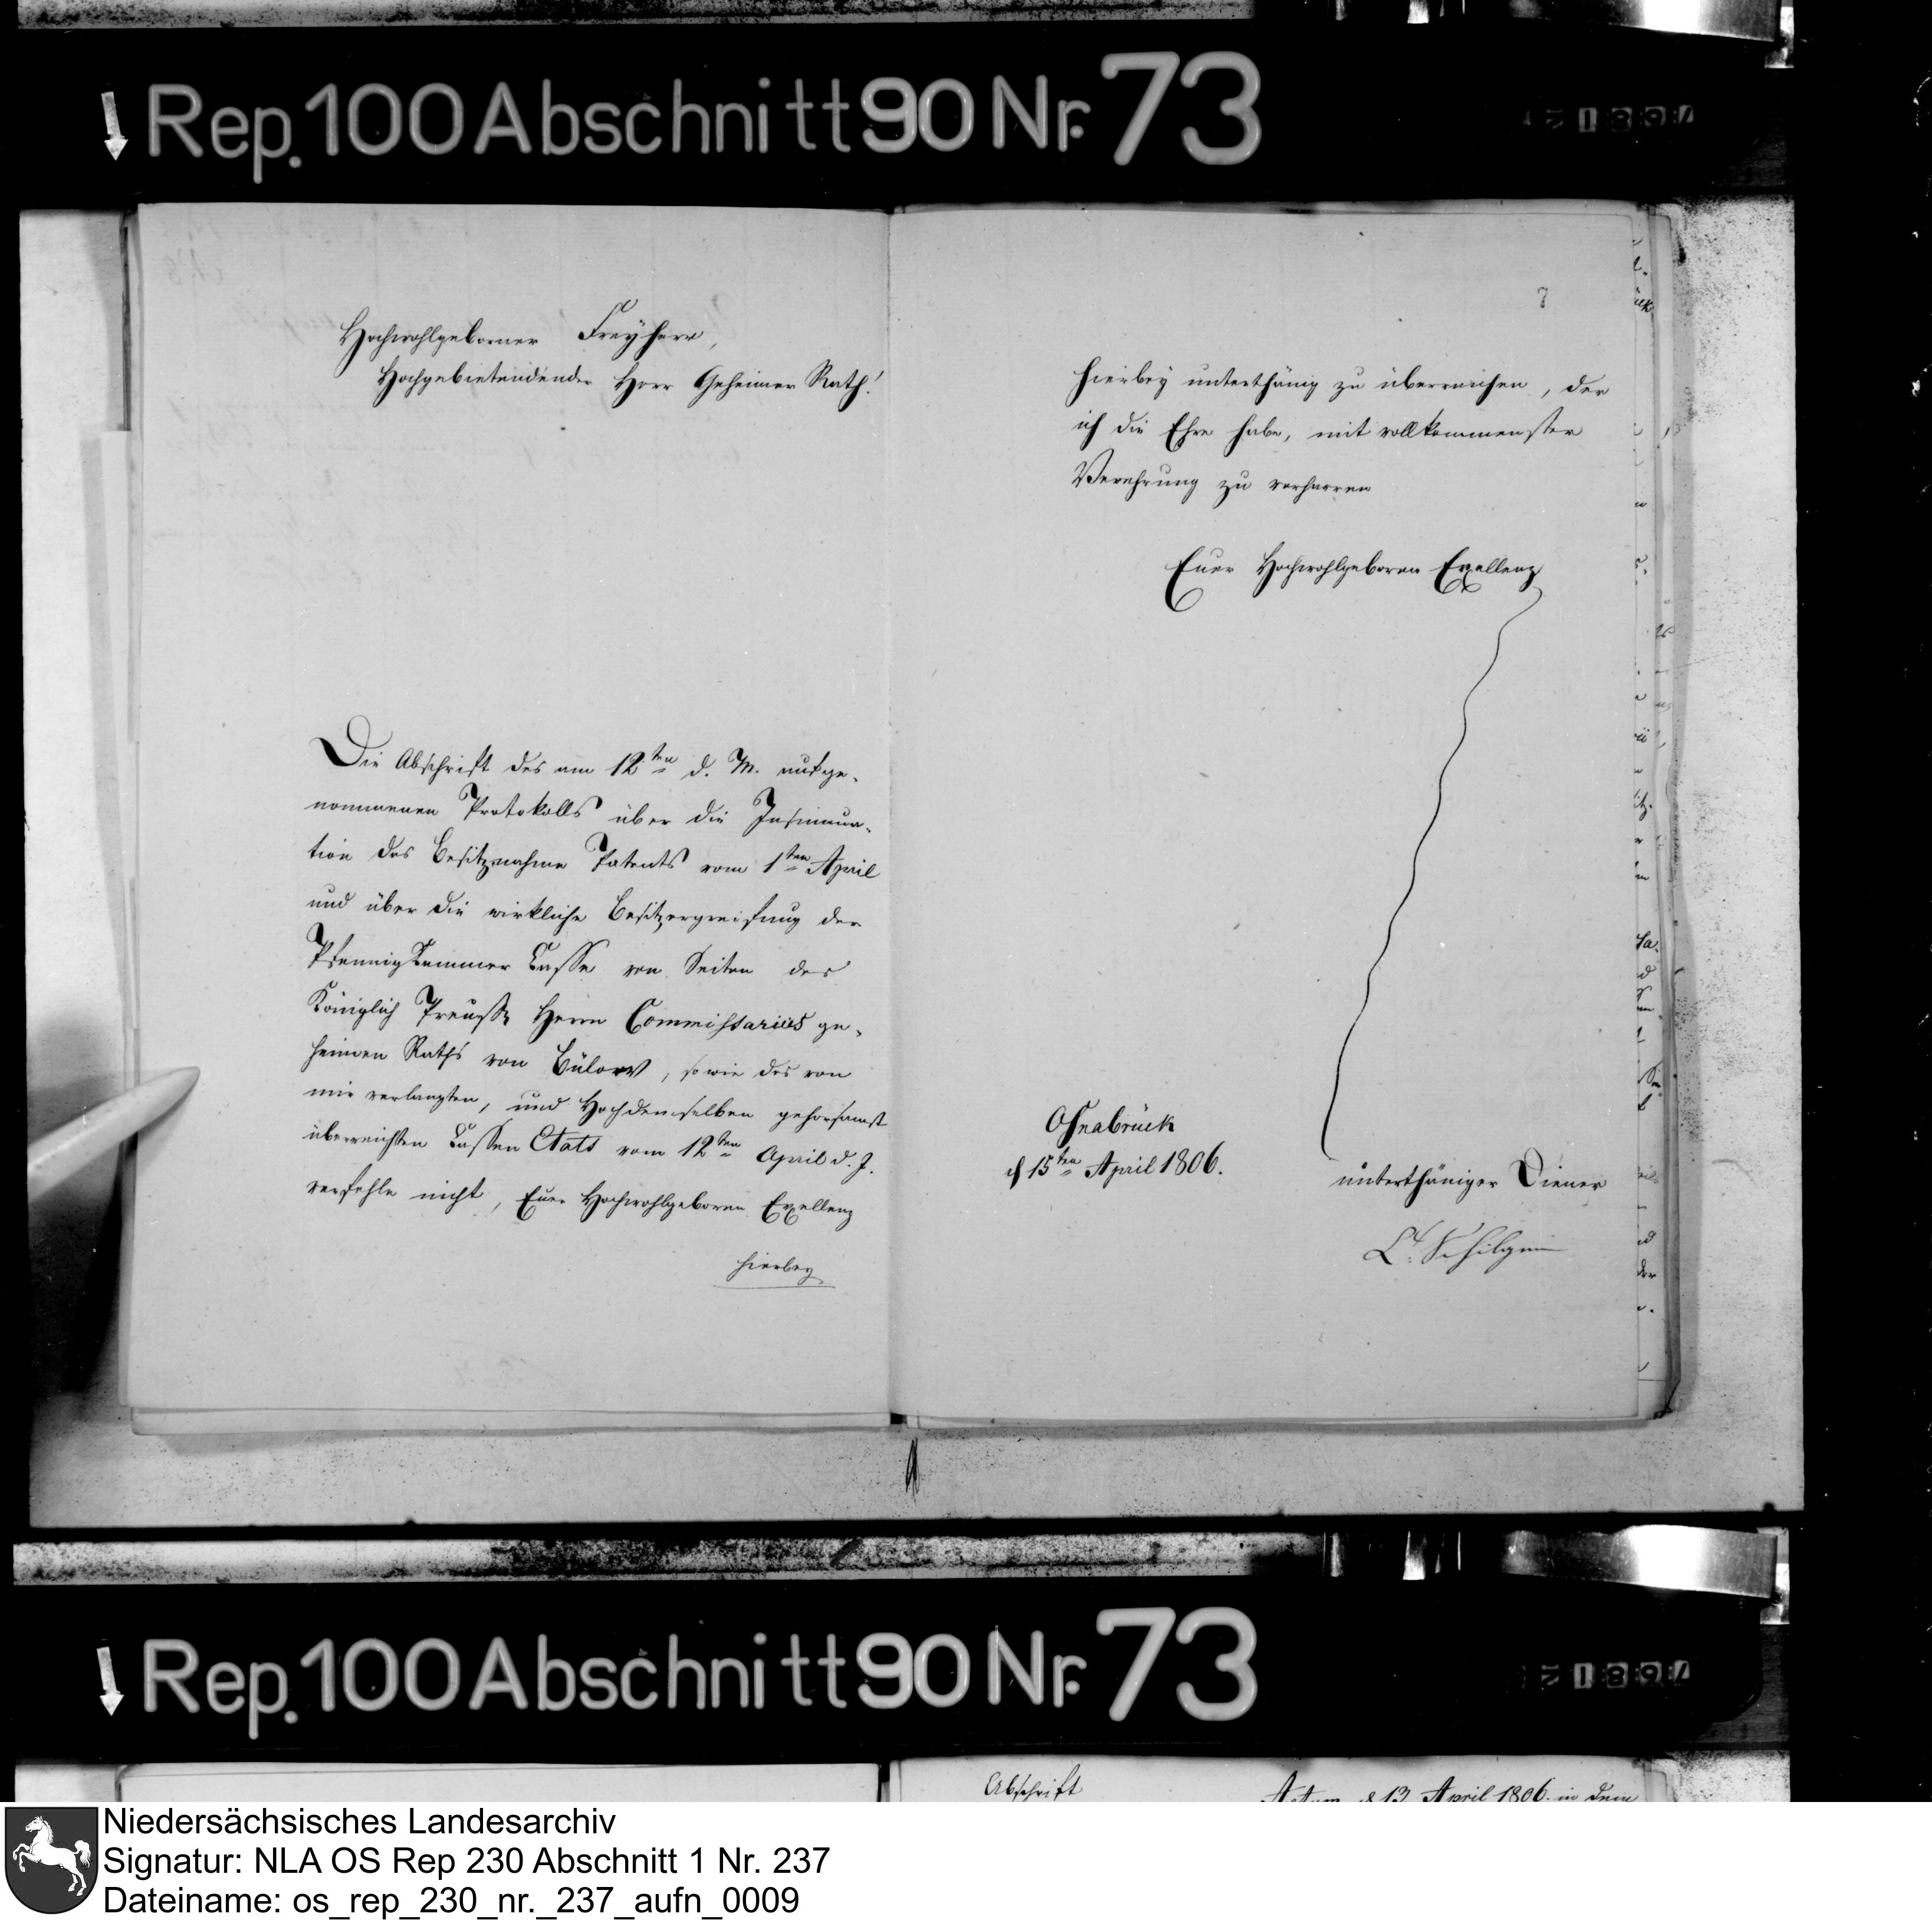 Rep. 100 Abschnitt 90 Nr. 73
Hochwohlgeborner Freyherr,
Hochgebietendender Herr Geheimer Rath!
Die Abschrift des am 12ten d. M. aufge-
nommenen Protokolls über die Insinua-
tion des Besitznahme Patents vom 1ten April
und über die wirkliche Besitzergreifung der
Pfennigkammer Casse von Seiten des
Königlich Preuß. Herrn Commissarius ge-
heimen Raths von Bülow, so wie des von
mir verlangten, und Hochdemselben gehorsamst
überreichten Cassen Etats vom 12ten April d. J.
verfehle nicht, Euer Hochwohlgeboren Exellenz
hierbey
7
hierbey unterthänig zu überreichen, der
ich die Ehre habe, mit vollkommenster
Verehrung zu verharren
Euer Hochwohlgeboren Exellenz
Osnabrück
d 15ten April 1806.
unterthäniger Diener
Schilgen
Rep. 100 Abschnitt 90 Nr. 73
Abschrift
Actum d 12 April 1806. in dem
Niedersächsisches Landesarchiv
Signatur: NLA OS Rep 230 Abschnitt 1 Nr. 237
Dateiname: os_rep_230_nr._237_aufn_0009